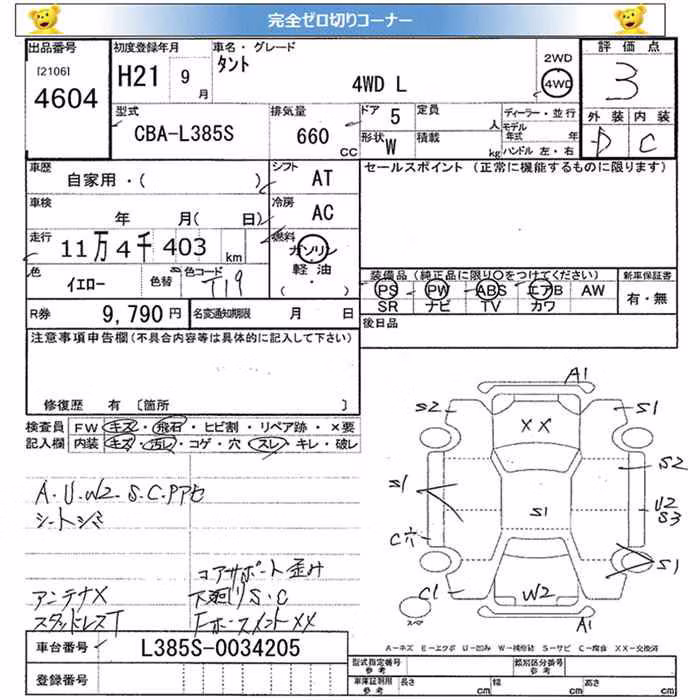 完全ゼロ切りコーナー
出品番号 初度登録年月 車名・グレード 評価点
[2106] タント 2WD
4604 H21 9月 4WD L 4WD 3
型式 排気量 ドア 5 定員 人 ディーラー・並行 外装 内装
CBA-L385S 660 CC 形状 W 積載 kg モデル年式 年 ハンドル 左・右 D C
車歴 シフト セールスポイント (正常に機能するものに限ります)
自家用・( ) AT
車検 冷房
年 月( 日) AC
走行 11万4千403 km 燃料 ガソリン
軽油
( ・ )
色 イエロー 色替 色コード T19 装備品 (純正品に限り〇をつけてください) 新車保証書
PS PW ABS エアB AW 有・無
SR ナビ TV カワ
R券 9,790円 名変通知期限 月 日 後日品
注意事項申告欄(不具合内容等は具体的に記入して下さい)
修復歴 有 [箇所 ]
検査員 FW キズ・飛石・ヒビ割・リペア跡・×要
記入欄 内装 キズ・汚レ・コゲ・穴・スレ・キレ・破レ
A1
S2 S1
XX
S2
S1 S1 U2
S3
C穴
S1
C1 W2
スペ A1
A・U・W2・S・C・Pアセ
シートシバ
コアサポート歪み
アンテナX 下廻りS・C
スタッドレスT FホースメントXX
A-キズ E-エクボ U-凹ミ W-補修跡 S-サビ C-腐食 XX-交換済
車台番号 L385S-0034205
型式指定番号 参考 類別区分番号 参考
登録番号 車庫証明用 参考 長さ cm 幅 cm 高さ cm